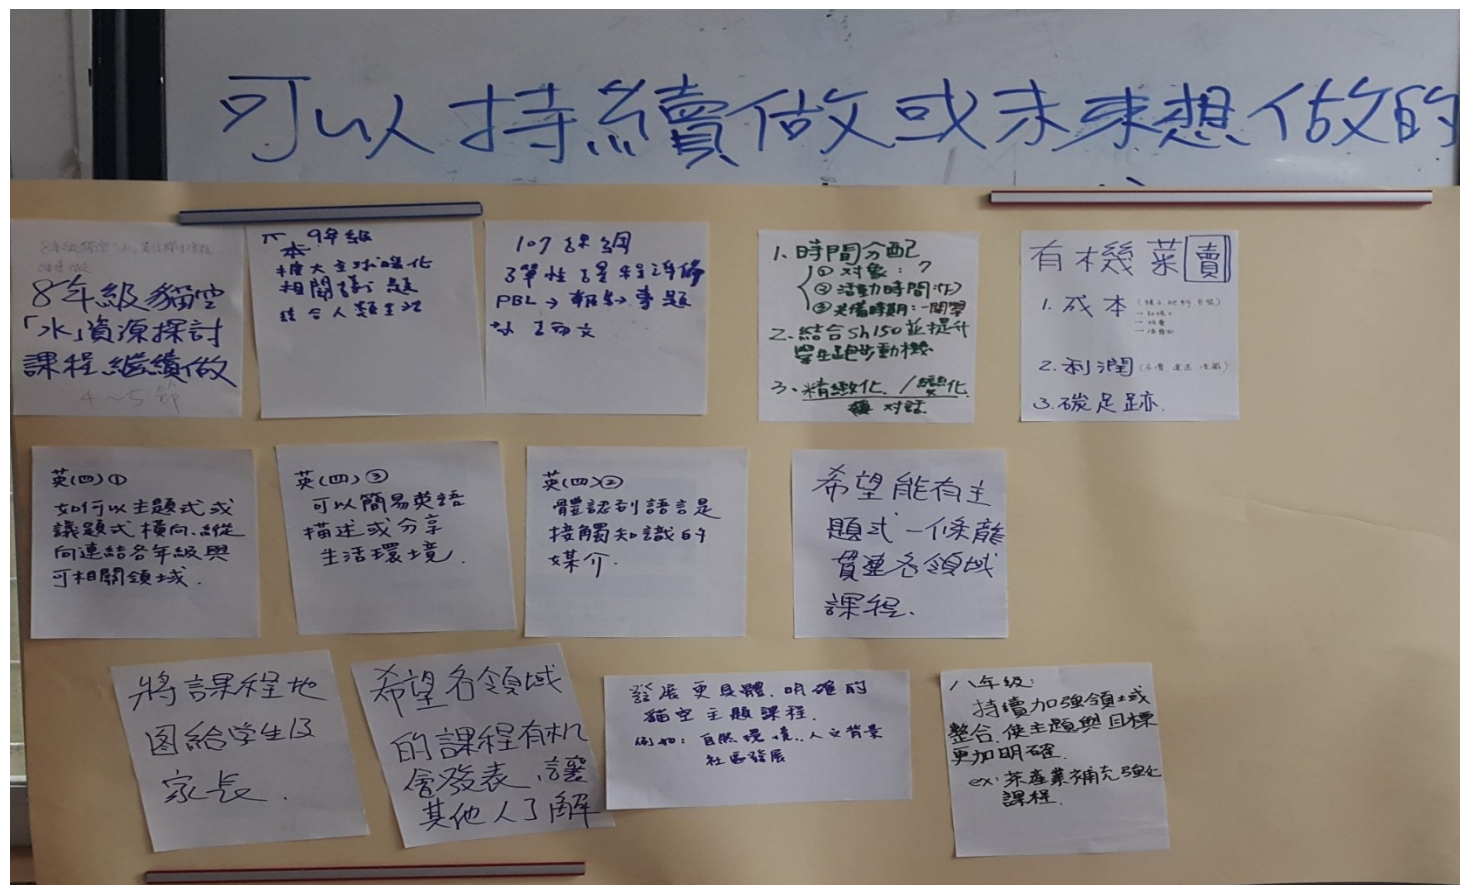 可以持續做或未來想做的
8年級貓空
「水」資源探討
課程繼續做
4～5節
9年級
擴大全球暖化
相關議題
結合人類生活
107課綱
彈性課程選修
PBL→報告→專題
1.時間分配
①對象：?
②活動時間
③準備時期：一開學
2.結合sh150並提升
學生跑步動機
3.精緻化／變化
對話
有機菜賣
1.成本
2.利潤
3.碳足跡.
英(四)①
如何以主題式或
議題式橫向、縱
向連結各年級與
可相關領域.
英(四)③
可以簡易英語
描述或分享
生活環境.
英(四)②
體認到語言是
接觸知識的
媒介.
希望能有主
題式一條龍
貫連各領域
課程.
將課程地
图給学生及
家長.
希望各領域
的課程有机
會發表,讓
其他人了解
發展更具體.明確的
貓空主題課程.
例如：自然環境.人文背景
社區發展
八年級：
持續加強領域
整合,使主題與目標
更加明確.
ex:茶產業補充強化
課程.